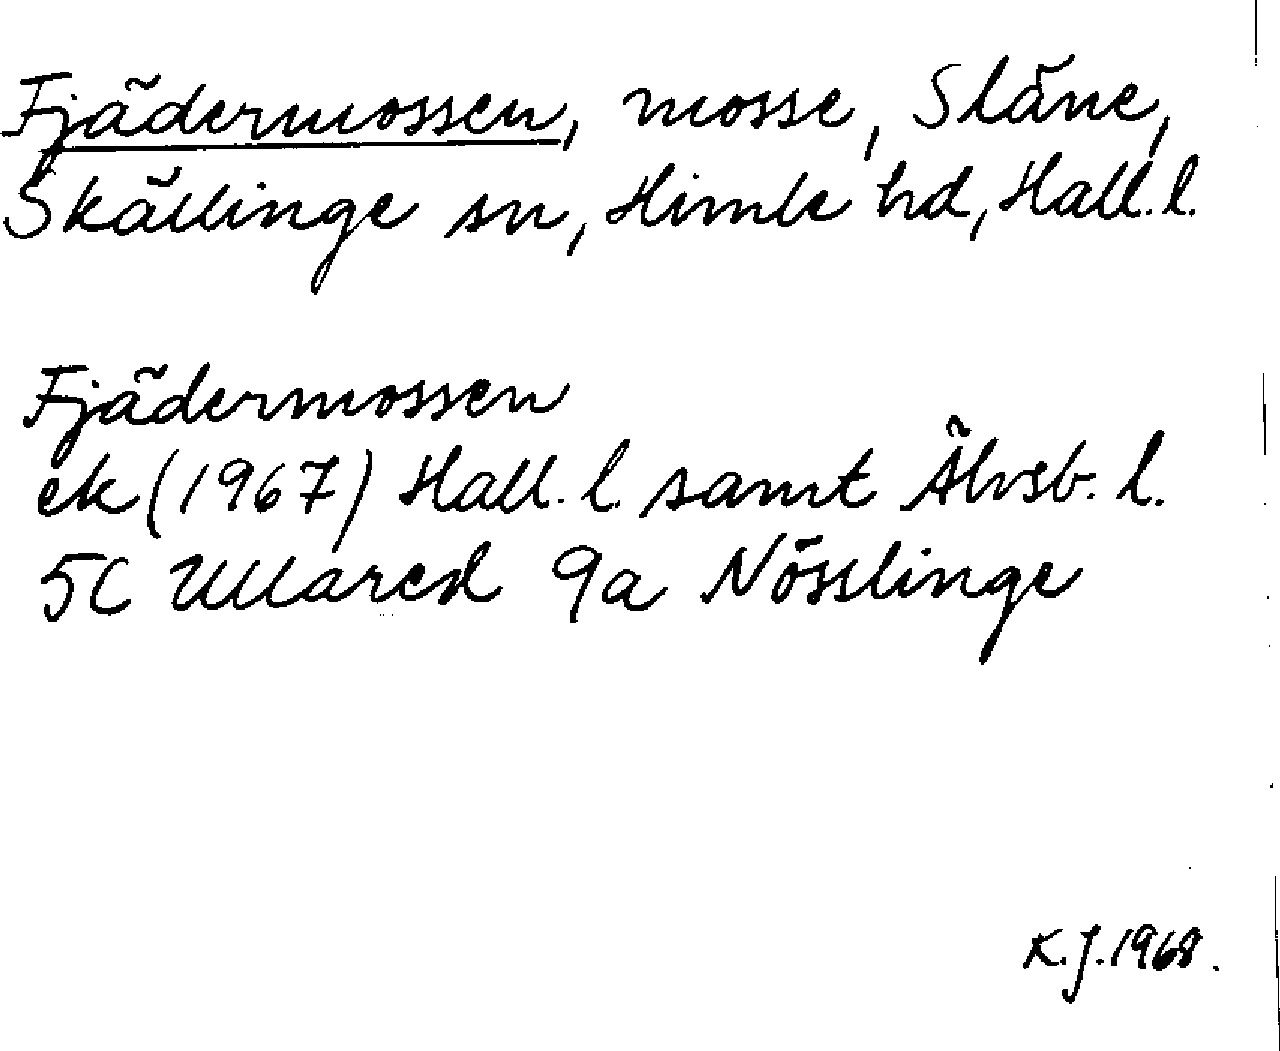 Fjädermossen, mosse, Släne,
Skällinge sn, Himle hd, Hall. l.
Fjädermossen
ek (1967) Hall. l. samt Älvsb. l.
5C Ullared 9a Nösslinge
K.J. 1968.